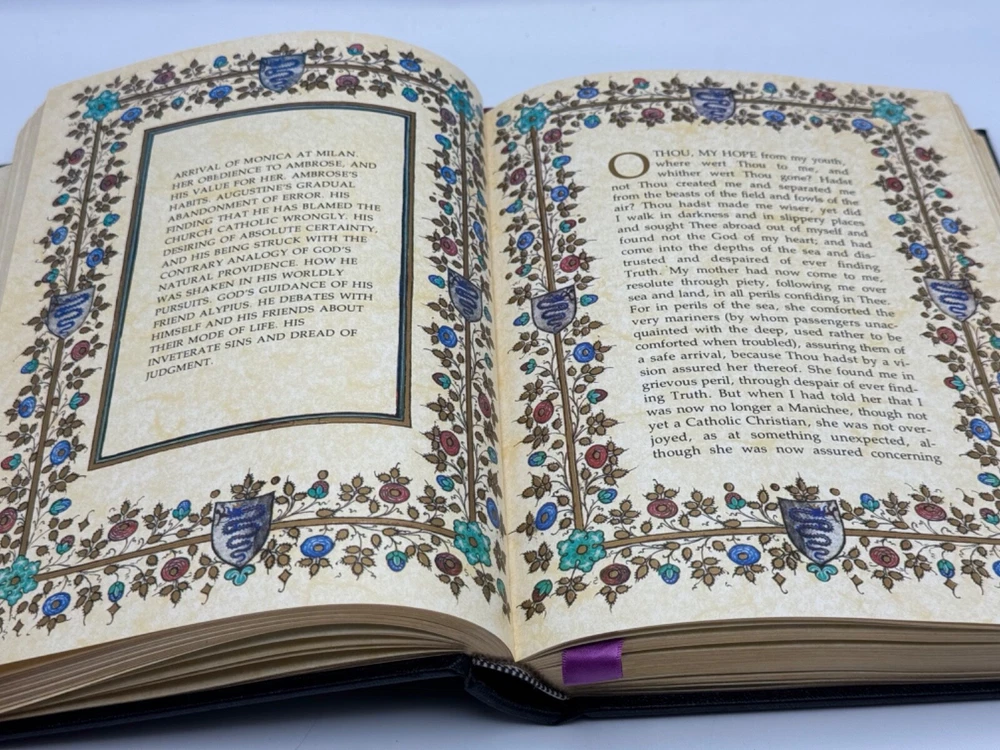 ARRIVAL OF MONICA AT MILAN.
HER OBEDIENCE TO AMBROSE, AND
HIS VALUE FOR HER. AMBROSE'S
HABITS. AUGUSTINE'S GRADUAL
ABANDONMENT OF ERROR. HIS
FINDING THAT HE HAS BLAMED THE
CHURCH CATHOLIC WRONGLY. HIS
DESIRING OF ABSOLUTE CERTAINTY,
AND HIS BEING STRUCK WITH THE
CONTRARY ANALOGY OF GOD'S
NATURAL PROVIDENCE. HOW HE
WAS SHAKEN IN HIS WORLDLY
PURSUITS. GOD'S GUIDANCE OF HIS
FRIEND ALYPIUS. HE DEBATES WITH
HIMSELF AND HIS FRIENDS ABOUT
THEIR MODE OF LIFE. HIS
INVETERATE SINS AND DREAD OF
JUDGMENT.
O THOU, MY HOPE from my youth,
where wert Thou to me, and
whither wert Thou gone? Hadst
not Thou created me and separated me
from the beasts of the field and fowls of the
air? Thou hadst made me wiser, yet did
I walk in darkness and in slippery places,
and sought Thee abroad out of myself and
found not the God of my heart; and had
come into the depths of the sea and dis-
trusted and despaired of ever finding
Truth. My mother had now come to me,
resolute through piety, following me over
sea and land, in all perils confiding in Thee.
For in perils of the sea, she comforted the
very mariners (by whom passengers unac-
quainted with the deep, used rather to be
comforted when troubled), assuring them of
a safe arrival, because Thou hadst by a vi-
sion assured her thereof. She found me in
grievous peril, through despair of ever find-
ing Truth. But when I had told her that I
was now no longer a Manichee, though not
yet a Catholic Christian, she was not over-
joyed, as at something unexpected, al-
though she was now assured concerning